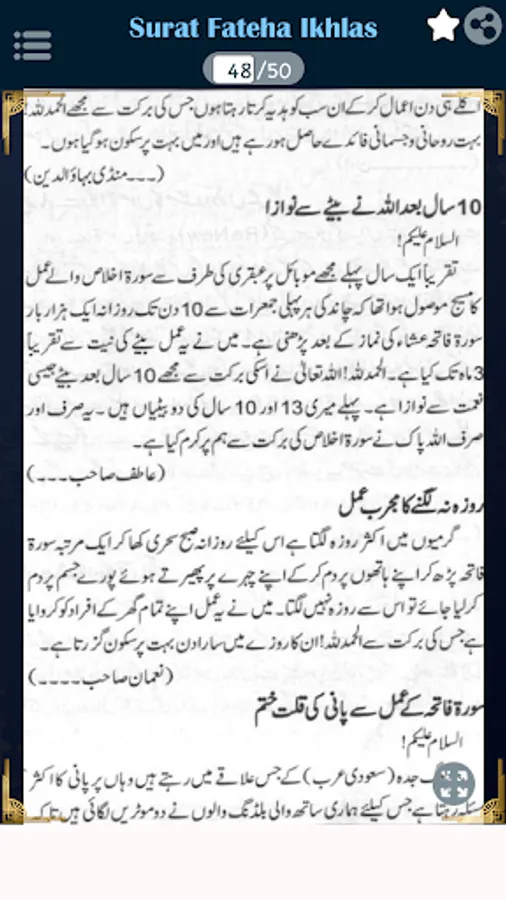 Surat Fateha Ikhlas
48/50
اگلے ہی دن اعمال کر کے ان سب کو ہدیہ کرتا رہتا ہوں جس کی برکت سے مجھے الحمدللہ!
بہت روحانی و جسمانی فائدے حاصل ہو رہے ہیں اور میں بہت پرسکون ہو گیا ہوں۔
(۔۔۔منڈی بہاؤالدین)
10 سال بعد اللہ نے بیٹے سے نوازا
السلام علیکم!
تقریباً ایک سال پہلے مجھے موبائل پر عبقری کی طرف سے سورۃ اخلاص والے عمل
کا میسج موصول ہوا تھا کہ چاند کی ہر پہلی جمعرات سے 10 دن تک روزانہ ایک ہزار بار
سورۃ فاتحہ عشاء کی نماز کے بعد پڑھنی ہے۔ میں نے یہ عمل بیٹے کی نیت سے تقریباً
3 ماہ تک کیا ہے۔ الحمدللہ! اللہ تعالیٰ نے اسکی برکت سے مجھے 10 سال بعد بیٹے جیسی
نعمت سے نوازا ہے۔ پہلے میری 13 اور 10 سال کی دو بیٹیاں ہیں۔ یہ صرف اور
صرف اللہ پاک نے سورۃ اخلاص کی برکت سے ہم پر کرم کیا ہے۔
(عاطف صاحب۔۔۔)
روزہ نہ لگنے کا مجرب عمل
گرمیوں میں اکثر روزہ لگتا ہے اس کیلئے روزانہ صبح سحری کھا کر ایک مرتبہ سورۃ
فاتحہ پڑھ کر اپنے ہاتھوں پر دم کر کے اپنے چہرے پر پھیرتے ہوئے پورے جسم پر دم
کر لیا جائے تو اس سے روزہ نہیں لگتا۔ میں نے یہ عمل اپنے تمام گھر کے افراد کو کروایا
ہے جس کی برکت سے الحمدللہ! ان کا روزے میں سارا دن بہت پرسکون گزرتا ہے۔
(نعمان صاحب۔۔۔۔)
سورۃ فاتحہ کے عمل سے پانی کی قلت ختم
السلام علیکم!
جدہ (سعودی عرب) کے جس علاقے میں رہتے ہیں وہاں پر پانی کا اکثر
مسئلہ رہتا ہے جس کیلئے ہماری ساتھ والی بلڈنگ والوں نے دو موٹریں لگائی ہیں تاکہ